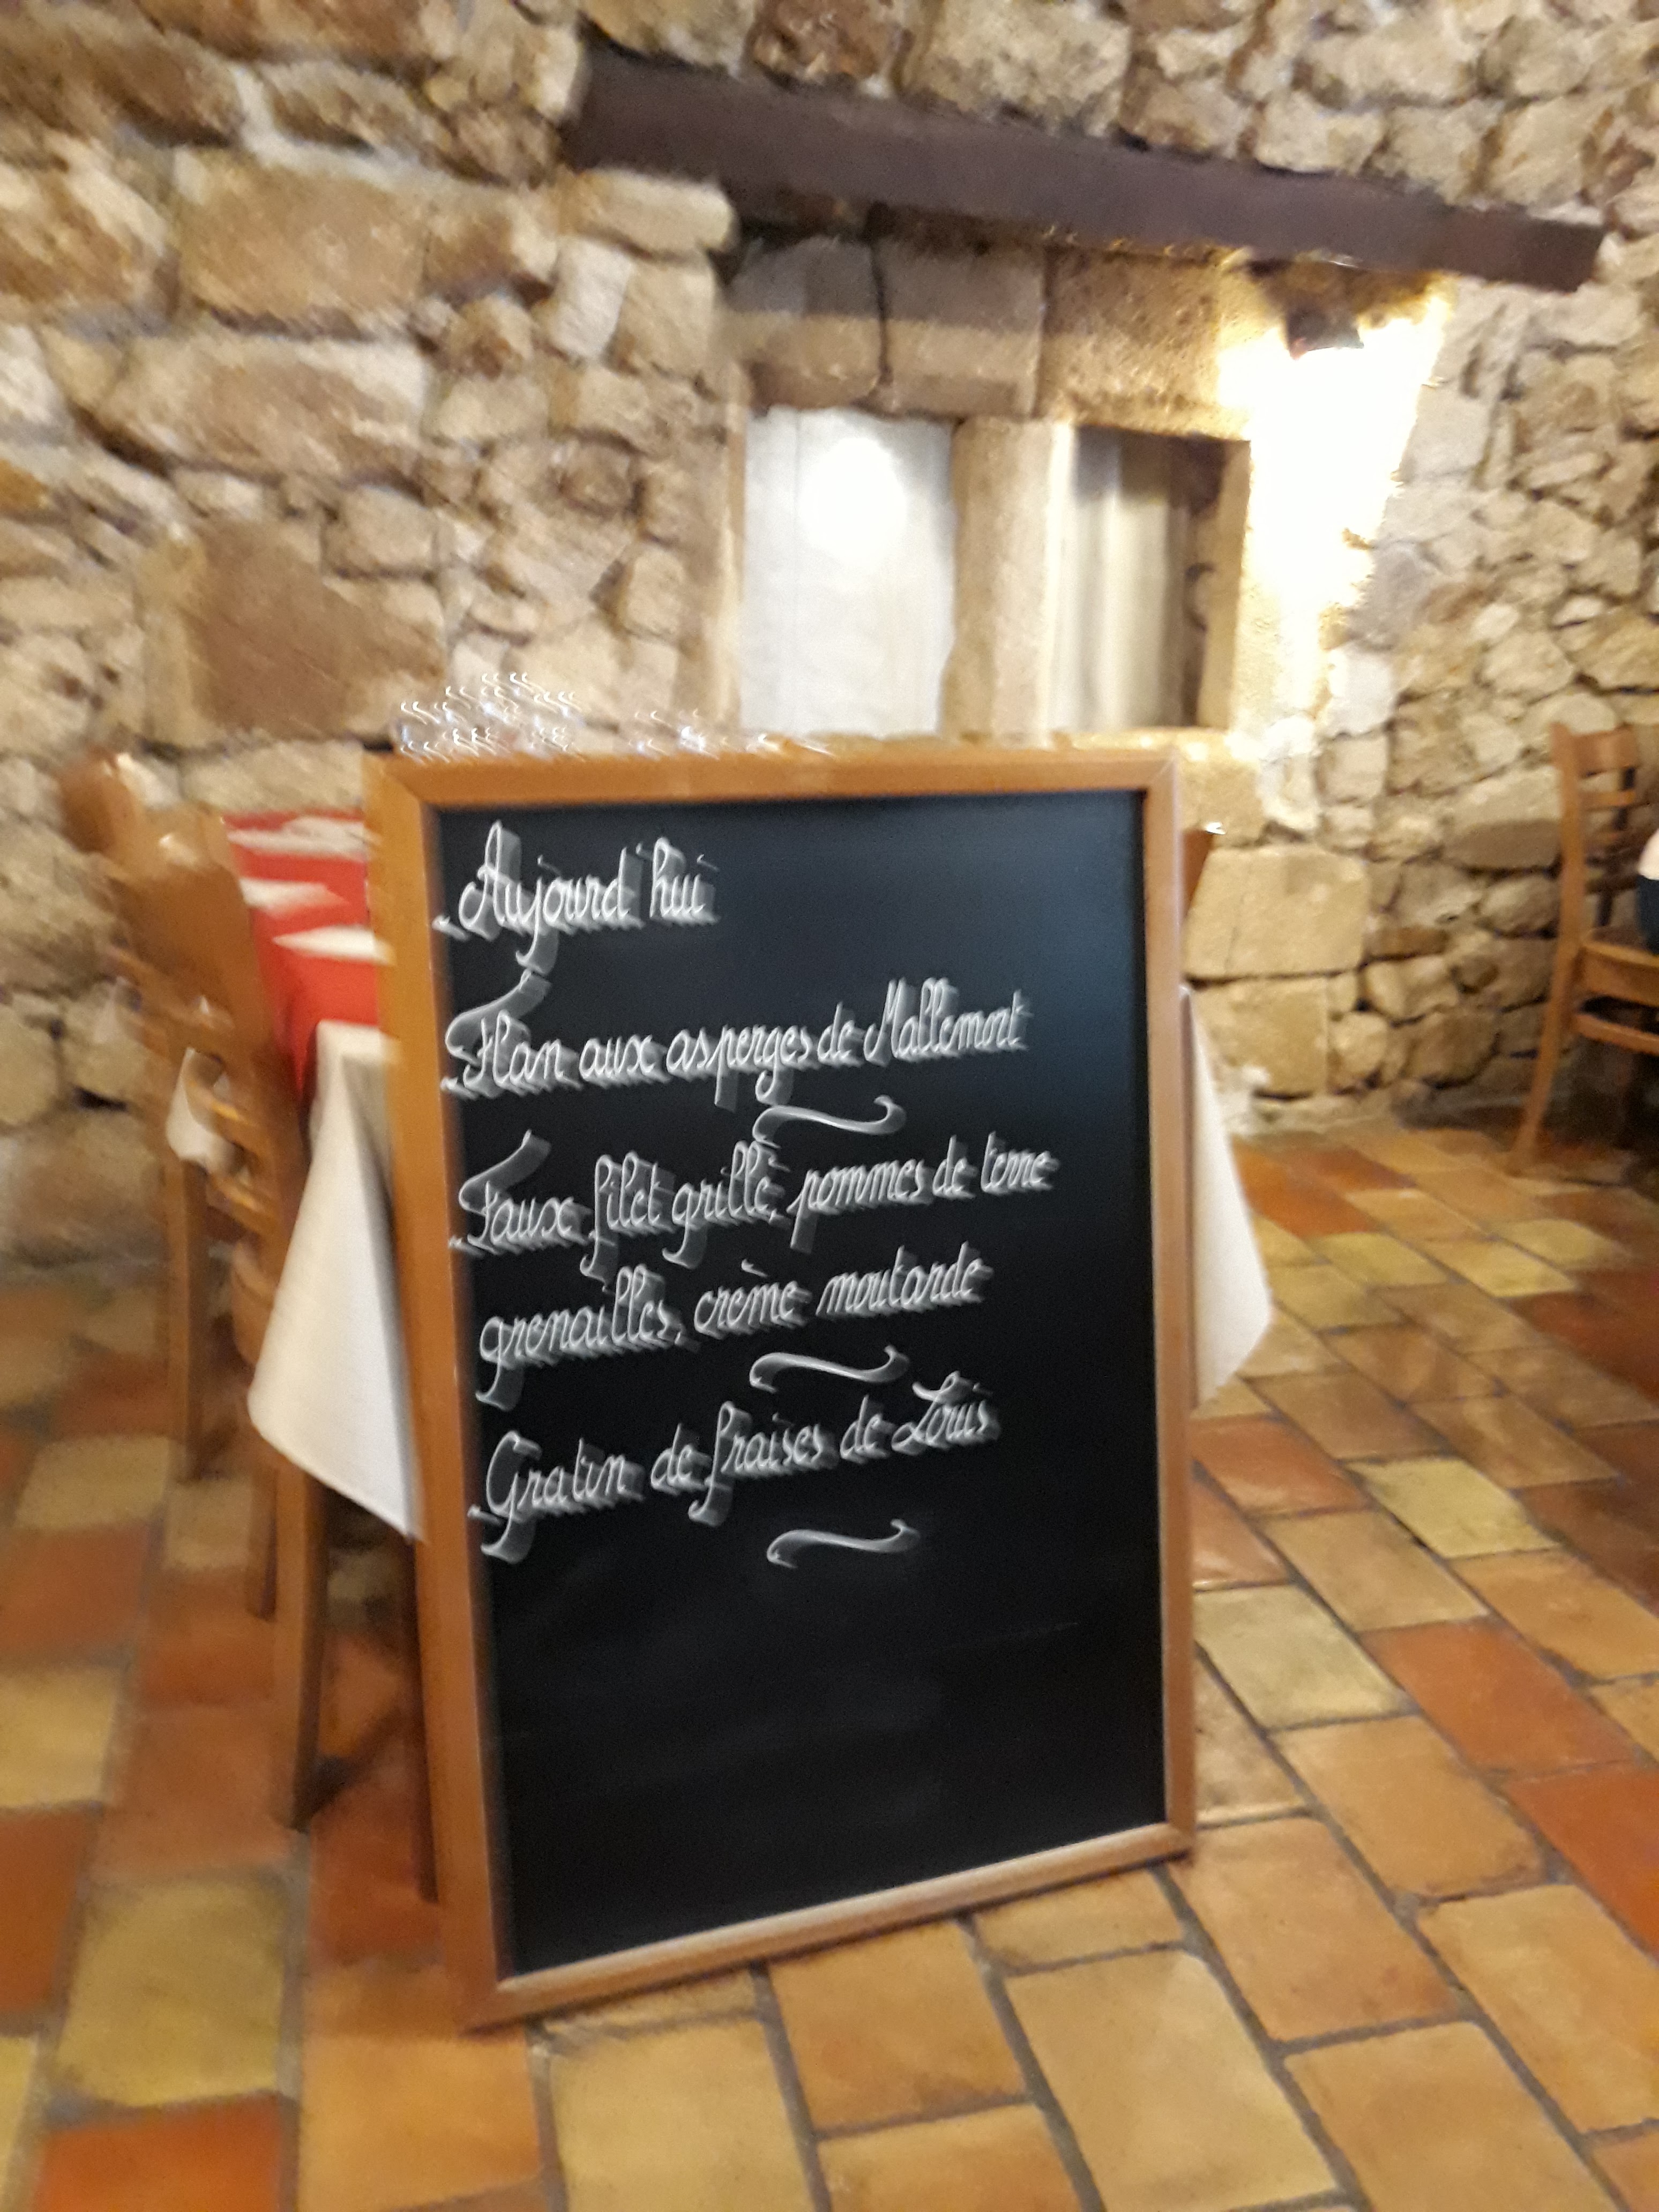 Aujourd'hui
Flan aux asperges de Mallemort
Faux filet grillé, pommes de terre
grenailles, crème moutarde
Gratin de fraises de Louis